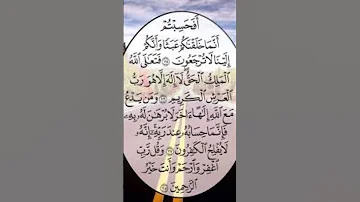 أَفَحَسِبْتُمْ
أَنَّمَا خَلَقْنَٰكُمْ عَبَثًا وَأَنَّكُمْ
إِلَيْنَا لَا تُرْجَعُونَ ١١٥ فَتَعَٰلَى ٱللَّهُ
ٱلْمَلِكُ ٱلْحَقُّ لَآ إِلَٰهَ إِلَّا هُوَ رَبُّ
ٱلْعَرْشِ ٱلْكَرِيمِ ١١٦ وَمَن يَدْعُ
مَعَ ٱللَّهِ إِلَٰهًا ءَاخَرَ لَا بُرْهَٰنَ لَهُۥ بِهِۦ
فَإِنَّمَا حِسَابُهُۥ عِندَ رَبِّهِۦٓ إِنَّهُۥ
لَا يُفْلِحُ ٱلْكَٰفِرُونَ ١١٧ وَقُل رَّبِّ
ٱغْفِرْ وَٱرْحَمْ وَأَنتَ خَيْرُ
ٱلرَّٰحِمِينَ ١١٨